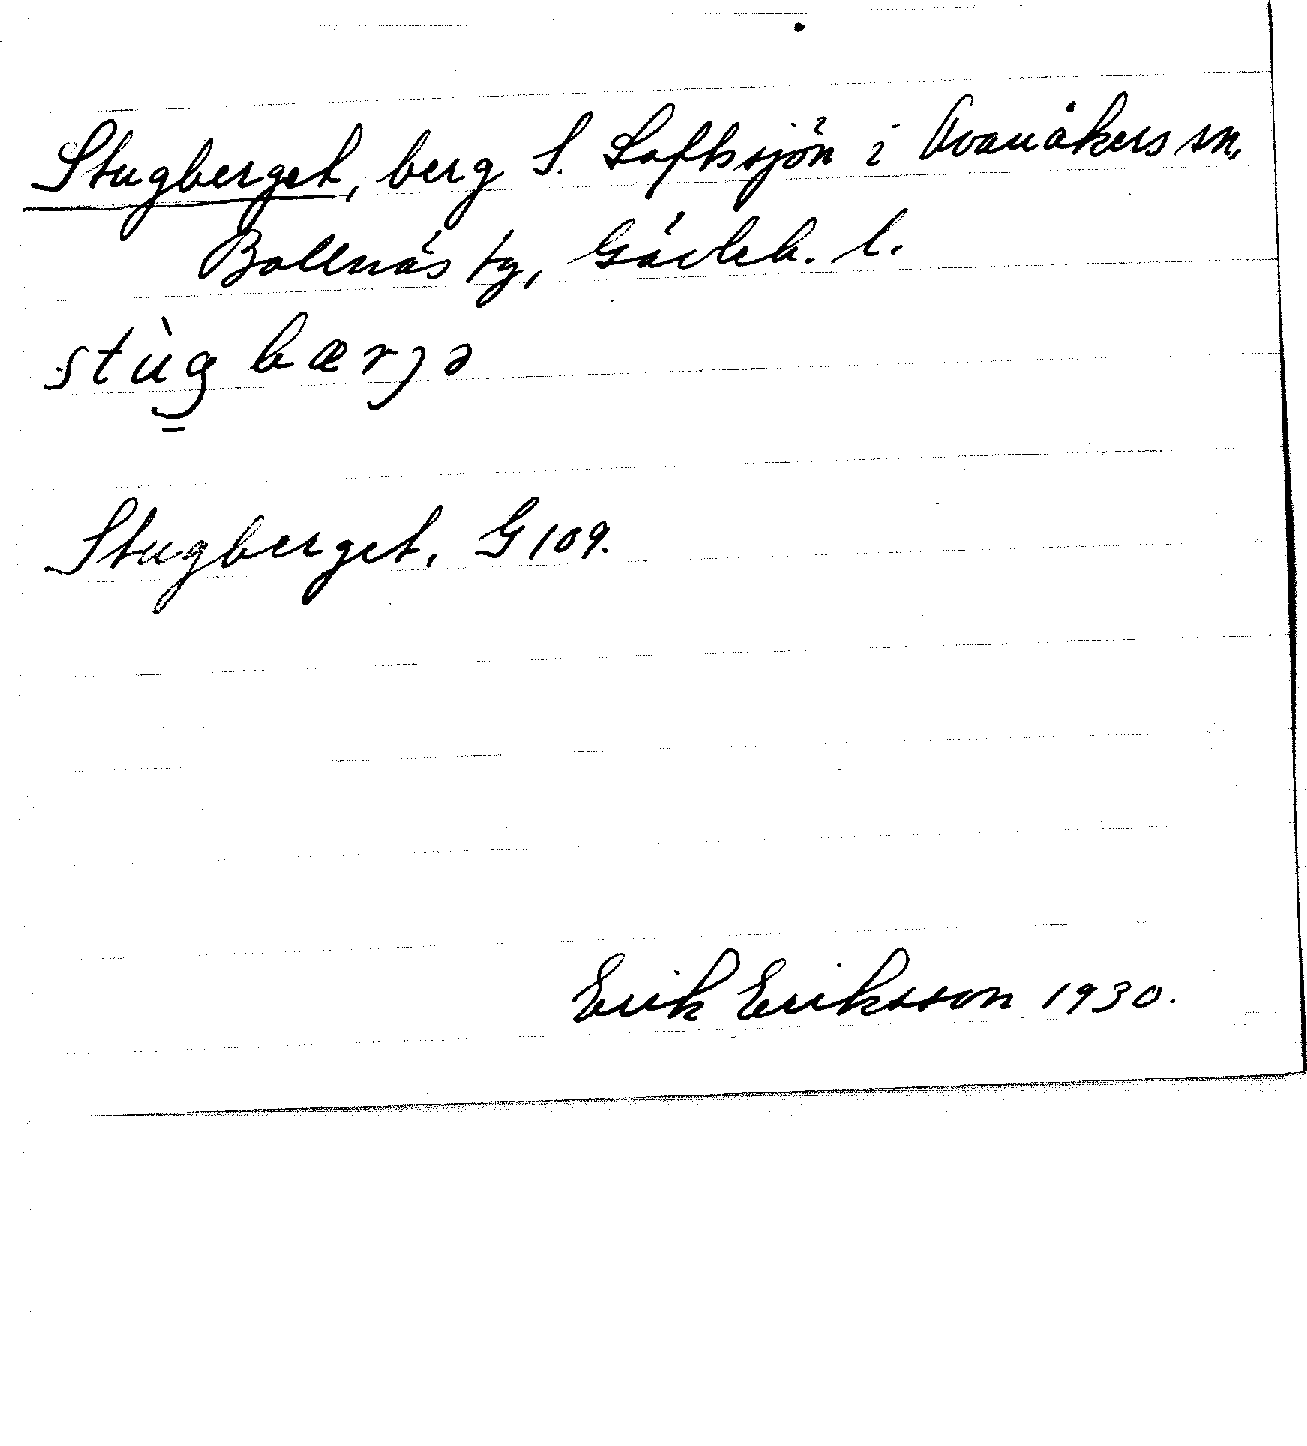 Stugberget, berg S. Loftssjön i Ovanåkers sn,
Bollnäs tg, Gävleb. l.
stùg bærjə
Stugberget. G 109.
Erik Eriksson 1930.